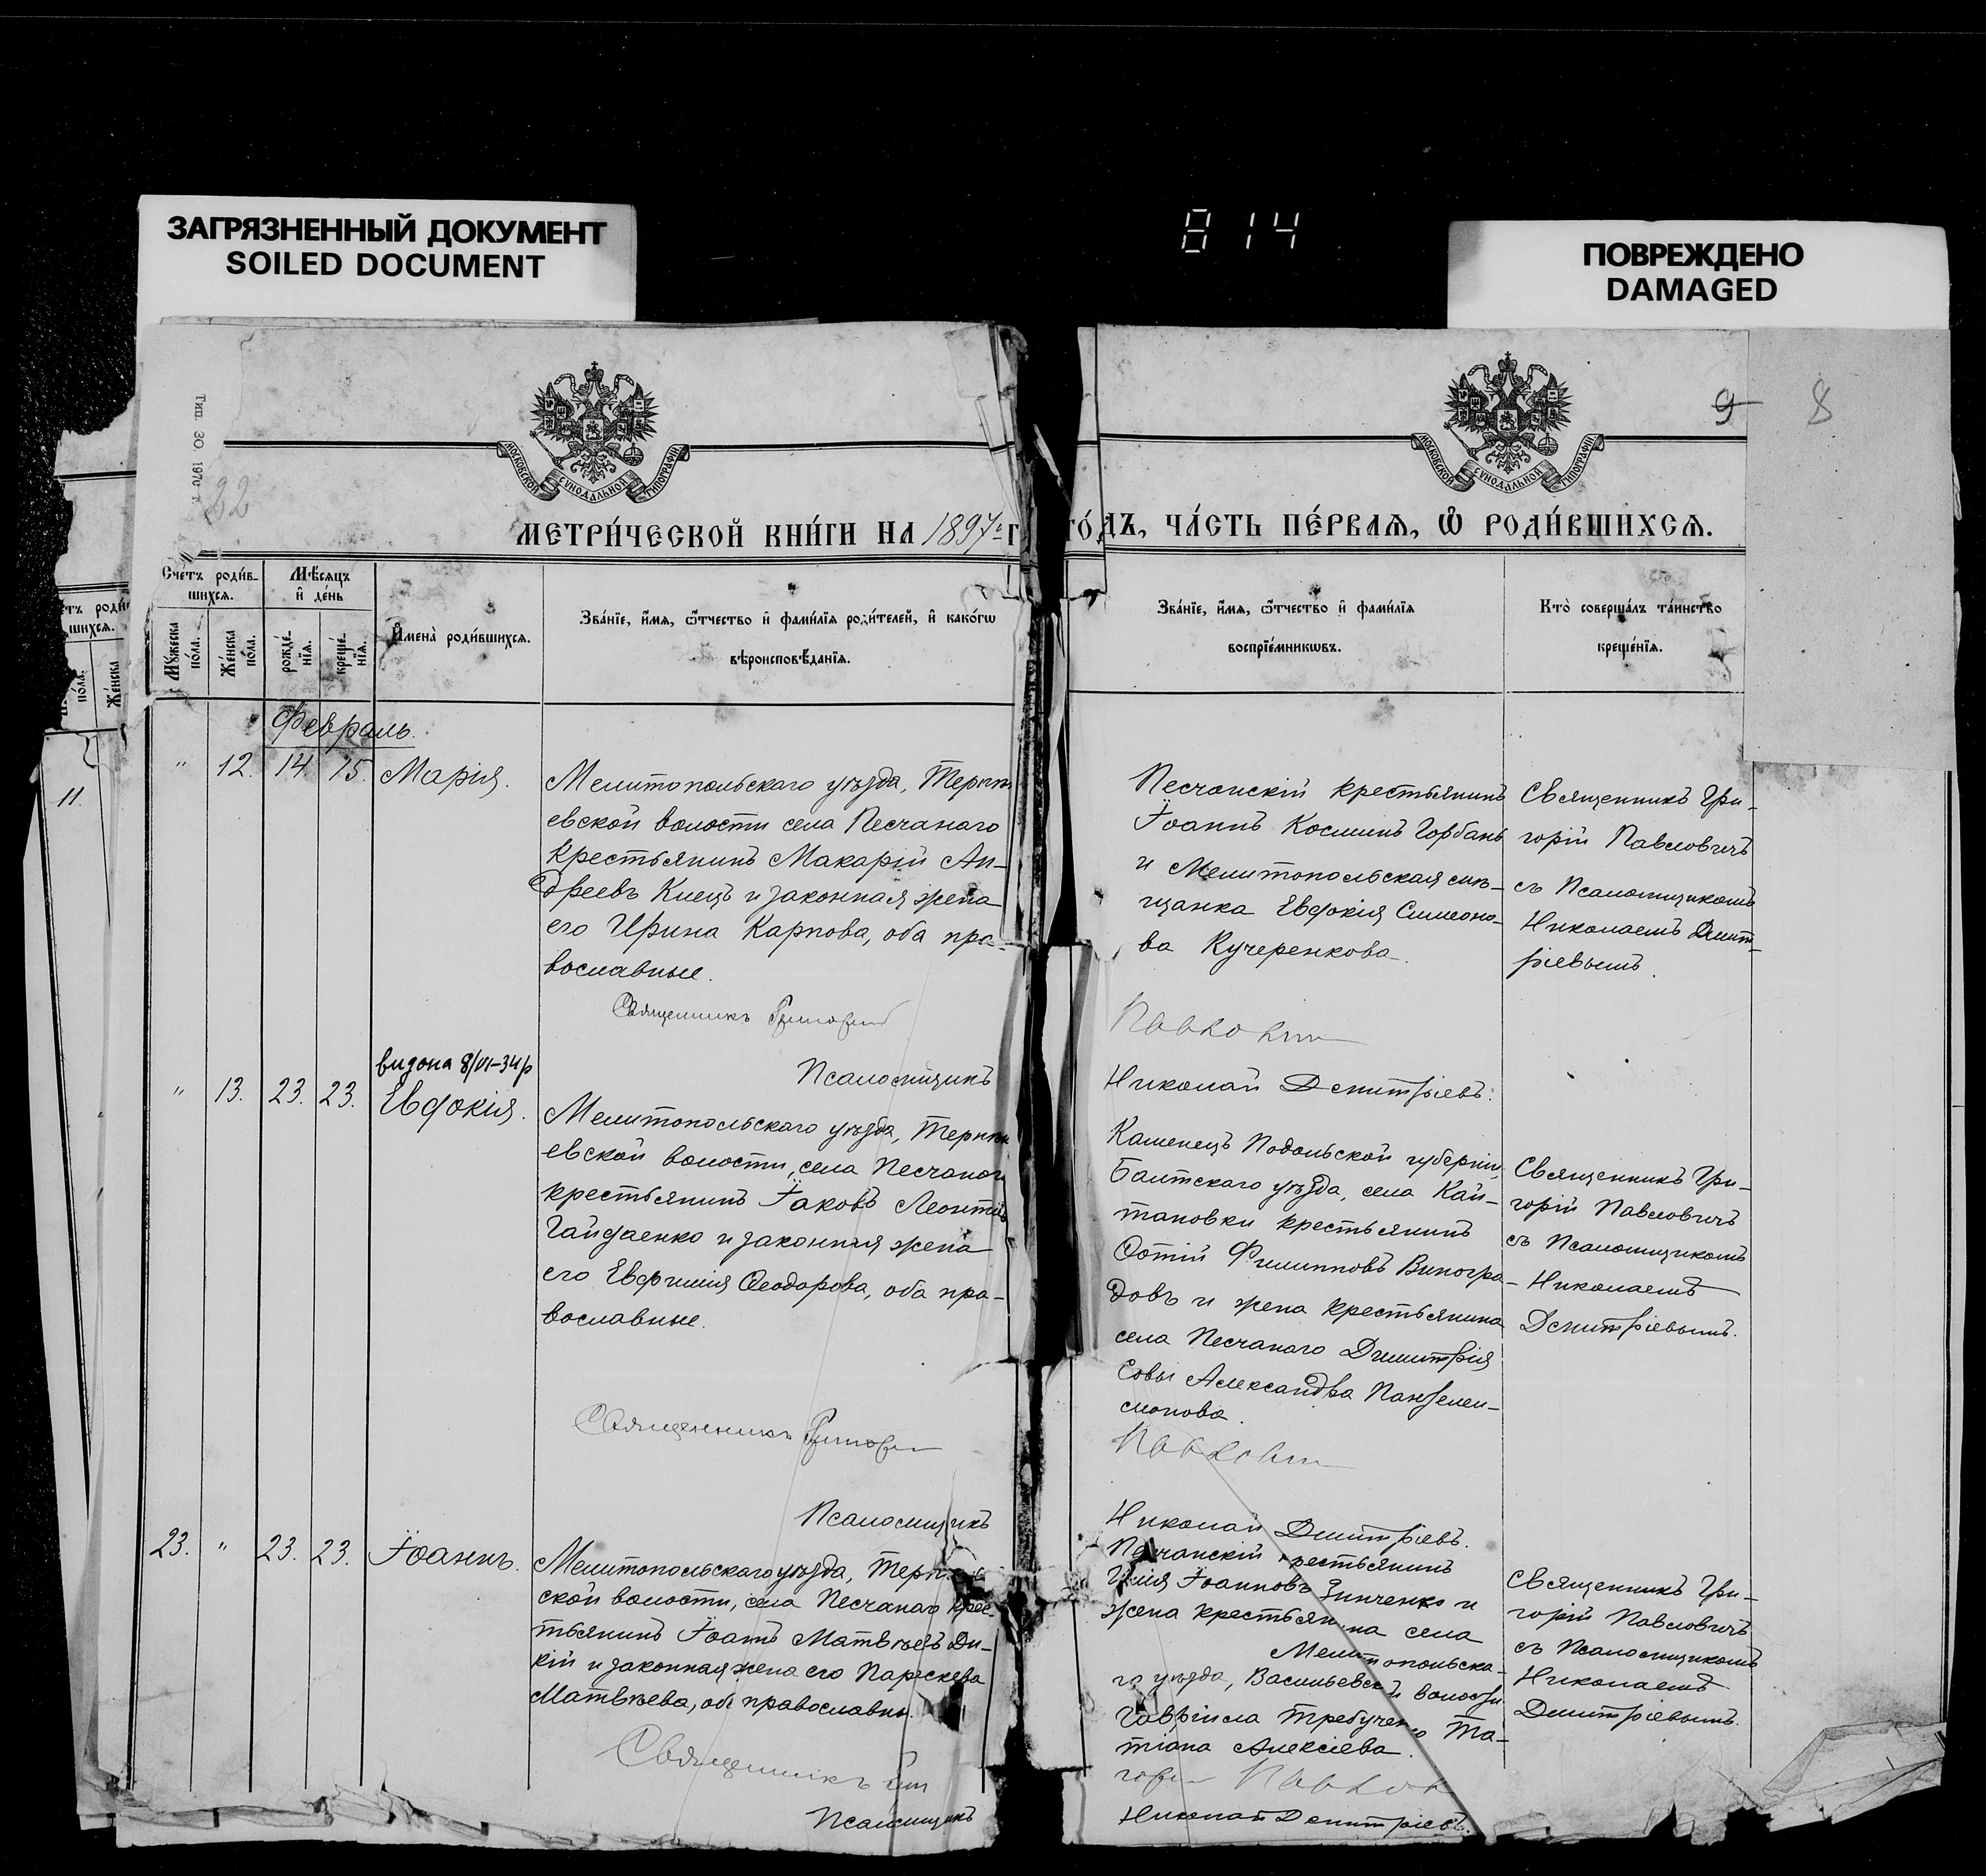 ЗАГРЯЗНЕННЫЙ ДОКУМЕНТ
SOILED DOCUMENT
814
ПОВРЕЖДЕНО
DAMAGED
Тип. ЗО. 1970 г.
22
9 8
МОСКОВСКОЙ СѴНОДАЛЬНОЙ ТИПОГРАФІИ
МОСКОВСКОЙ СѴНОДАЛЬНОЙ ТИПОГРАФІИ
МЕТРИ́ЧЕСКОЙ КНИ́ГИ НА 1897й г
го́дъ, ча́сть пе́рваѧ, ѽ роди́вшихсѧ.
Сче́тъ роди́в-
шихсѧ.
Мѣ́сѧцъ
и҆ де́нь
Мꙋ́жеска
по́ла.
Же́нска
по́ла.
рожде́-
нїѧ.
креще́-
нїѧ.
И҆мена̀ роди́вшихсѧ.
Зва́нїе, и҆́мѧ, ѻ҆́тчество и҆ фами́лїѧ роди́телей, и҆ како́гѡ
вѣроисповѣ́данїѧ.
Зва́нїе, и҆́мѧ, ѻ҆́тчество и҆ фами́лїѧ
воспрїе́мникѡвъ.
Кто̀ соверша́лъ та́инство
креще́нїѧ.
11.
Февраль.
" 12. 14 15. Марія.
Мелитопольскаго уѣзда, Терпѣн
евской волости села Песчанаго
крестьянинъ Макарій Ан-
дреевъ Киецъ и законная жена
его Ирина Карпова, оба пра-
вославные.
Священникъ Григорій
Псаломщикъ
Песчанскій крестьянинъ
Іоаннъ Косминъ Горбань
и Мелитопольская мѣ-
щанка Евдокія Симеоно-
ва Кучеренкова.
Павлович
Николай Димитріевъ.
Священникъ Гри-
горій Павловичъ
съ Псаломщикомъ
Николаемъ Димит-
ріевымъ.
видона 8/VI-34 р
" 13. 23. 23. Евдокія.
Мелитопольскаго уѣзда, Терпѣн
евской волости, села Песчаног
крестьянинъ Іаковъ Леонтіев
Гайдаенко и законная жена
его Евфимія Ѳеодорова, оба пра-
вославные.
Священникъ Григорій
Псаломщикъ
Каменецъ Подольской губерніи,
Балтскаго уѣзда, села Кай-
тановки крестьянинъ
Фотій Филипповъ Виногра-
довъ и жена крестьянина
села Песчанаго Димитрія
Совы Александра Пантелеи-
монова.
Павлович
Николай Димитріевъ.
Священникъ Гри-
горій Павловичъ
съ Псаломщикомъ
Николаемъ
Димитріевымъ.
23. " 23. 23. Іоаннъ.
Мелитопольскаго уѣзда, Терп
ской волости, села Песчанаго крес-
тьянинъ Іоаннъ Матвѣевъ Ди-
кій и законная жена его Параскева
Матвѣева, оба православны.
Священникъ Гри
Псаломщикъ
Песчанскій крестьянинъ
Илія Іоанновъ Зинченко и
жена крестьянина села
Мелитопольска-
го уѣзда, Васильевской волости
Гавріила Требученко Та-
тіана Алексіева.
горій Павлов
Николай Димитріевъ.
Священникъ Гри-
горій Павловичъ
съ Псаломщикомъ
Николаемъ
Димитріевымъ.